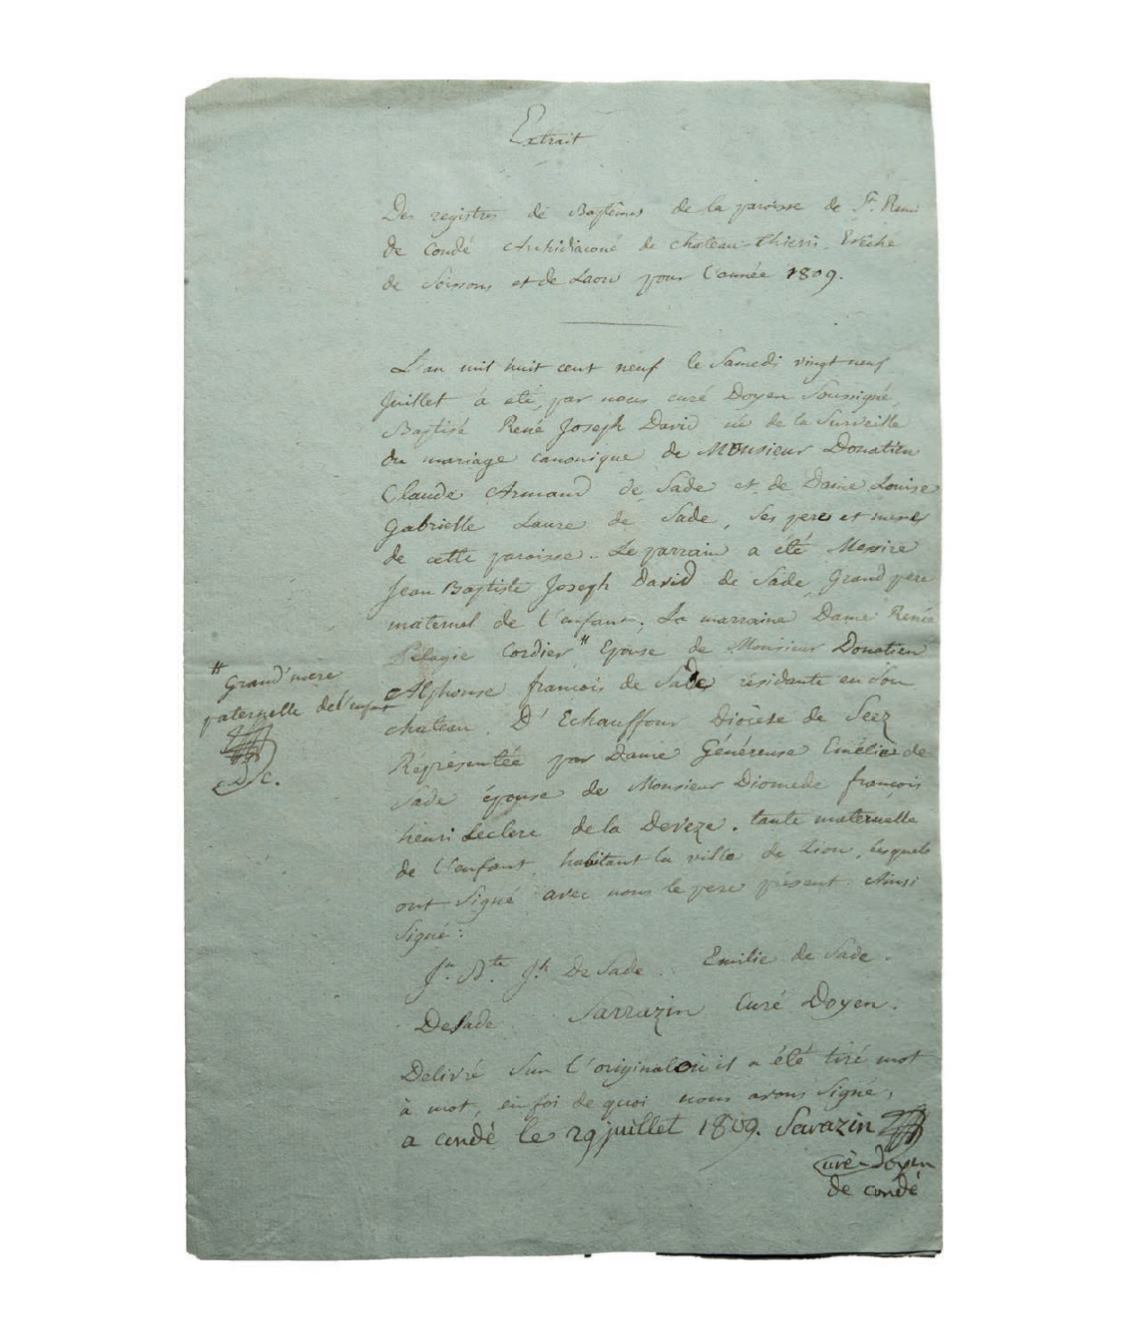 Extrait
Des registres de Baptêmes de la paroisse de St. Remi
de Condé Archidiaconé de chateau-thierri. Evêché
de Soissons et de Laon pour l'année 1809.
L'an mil huit cent neuf le Samedi vingt neuf
juillet a été, par nous curé Doyen Soussigné,
Baptisé René Joseph David né de la Surveille
du mariage canonique de Monsieur Donatien
Claude Armand de Sade et de Dame Louise
Gabrielle Laure de Sade, Ses pere et mere
de cette paroisse. Le parrain a été Messire
Jean Baptiste Joseph David de Sade Grand pere
maternel de l'enfant; La marraine Dame Renée
Pélagie Cordier # Epouse de Monsieur Donatien
Alphonse francois de Sade résidante en Son
chateau D'Echauffour Diocèse de Seez
Représentée par Dame Généreuse Emélie de
Sade épouse de Monsieur Diomede françois
henri Leclerc de la Deveze. tante maternelle
de l'enfant, habitant la ville de Lion, lesquels
ont Signé avec nous le pere présent. Ainsi
Signé:
# Grand'mere
paternelle de l'enfant
Jn. Bte. Jh. De Sade. Emilie de Sade.
DeSade Sarrazin Curé Doyen.
Delivré Sur l'original où il a été tiré mot
à mot, en foi de quoi nous avons Signé,
a condé le 29 juillet 1809. Sarazin
curé-doyen
de condé